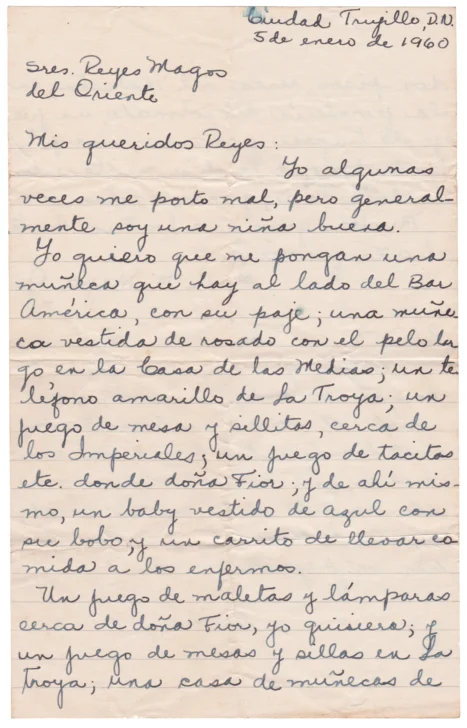 Ciudad Trujillo, D.N.
5 de enero de 1960
Sres. Reyes Magos
del Oriente
Mis queridos Reyes:
Yo algunas
veces me porto mal, pero general-
mente soy una niña buena.
Yo quiero que me pongan una
muñeca que hay al lado del Bar
América, con su paje; una muñe-
ca vestida de rosado con el pelo lar
go en la Casa de las Medias; un te
léfono amarillo de La Troya; un
juego de mesa y sillitas, cerca de
los Imperiales; un juego de tacitas
etc. donde doña Fior; y de ahí mis-
mo, un baby vestido de azul con
su bobo, y un carrito de llevar co
mida a los enfermos.
Un juego de maletas y lámparas
cerca de doña Fior, yo quisiera; y
un juego de mesas y sillas en La
Troya; una casa de muñecas de